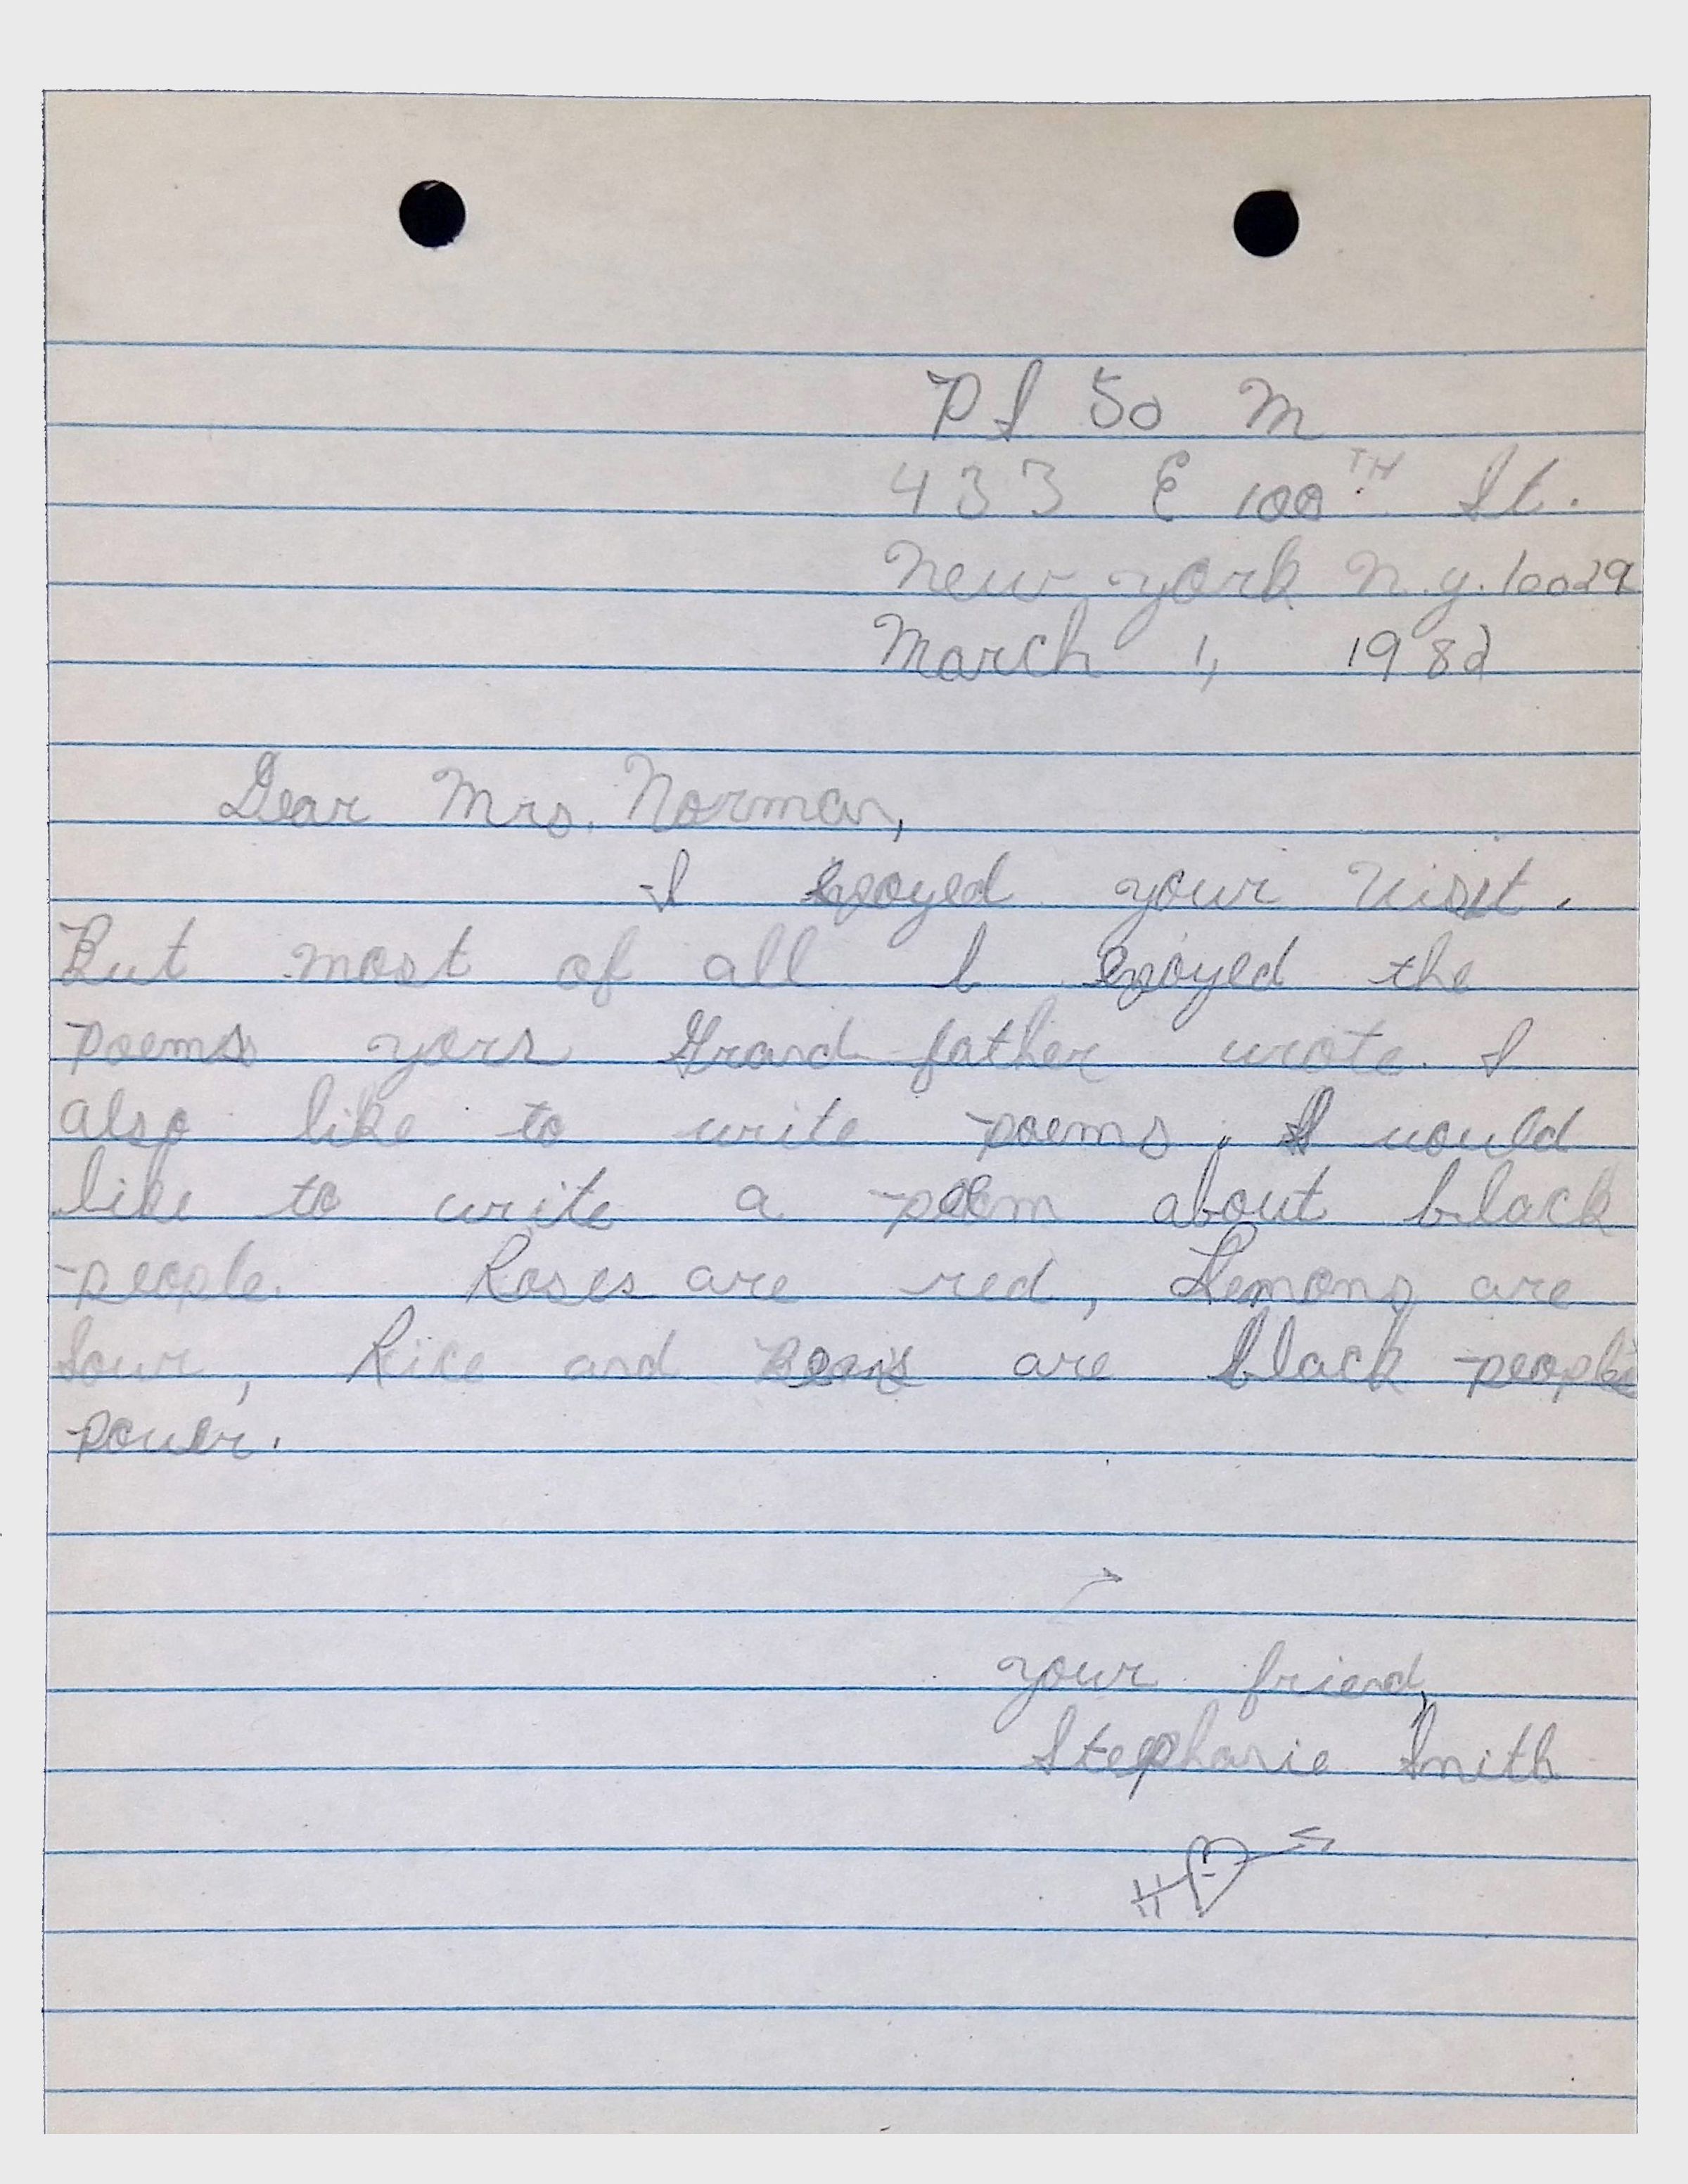 PS 50 M
433 E 100TH St.
New york N.y. 10029
March 1, 1982
Dear Mrs. Norman,
I enoyed your visit.
But most of all I enjoyed the
poems yors Grand father wrote. I
also like to write poems. I would
like to write a poem about black
people. Roses are red, Lemons are
Sour, Rice and Beans are black people's
power.
your friend,
Stephanie Smith